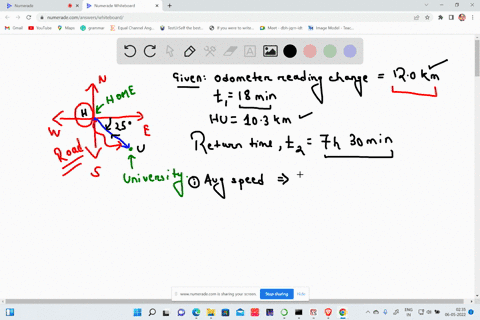 Numerade
Numerade Whiteboard
numerade.com/answers/whiteboard/
Gmail
YouTube
Maps
grammar
Equal Channel Ang...
If you were write...
Image Model - Tasc...
Given: Odometer reading change = 12.0 km
t₁ = 18 min
HU = 10.3 km
Return time, t₂ = 7h 30min
① Avg speed ⇒
N
HOME
H
W
E
25°
Road
S
U
University
numerade.com is sharing your screen.
Stop sharing
Hide
ENG
IN